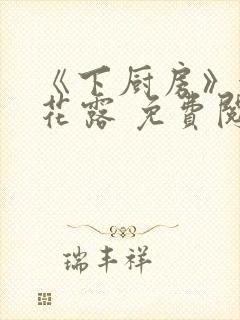 《下厨房》
花露 免費閱
瑞丰祥